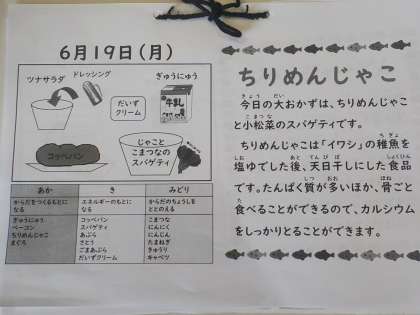 6月19日(月)
ツナサラダ
ドレッシング
ぎゅうにゅう
牛乳
だいず
クリーム
コッペパン
じゃこと
こまつなの
スパゲティ
あか
き
みどり
からだをつくるもとに
なる
エネルギーのもとに
なる
からだのちょうしを
ととのえる
ぎゅうにゅう
ベーコン
ちりめんじゃこ
まぐろ
コッペパン
スパゲティ
あぶら
さとう
ごまあぶら
だいずクリーム
こまつな
にんにく
にんじん
たまねぎ
きゅうり
キャベツ
ちりめんじゃこ
今日の大おかずは、ちりめんじゃこ
と小松菜のスパゲティです。
ちりめんじゃこは「イワシ」の稚魚を
塩ゆでした後、天日干しにした食品
です。たんぱく質が多いほか、骨ごと
食べることができるので、カルシウム
をしっかりとることができます。